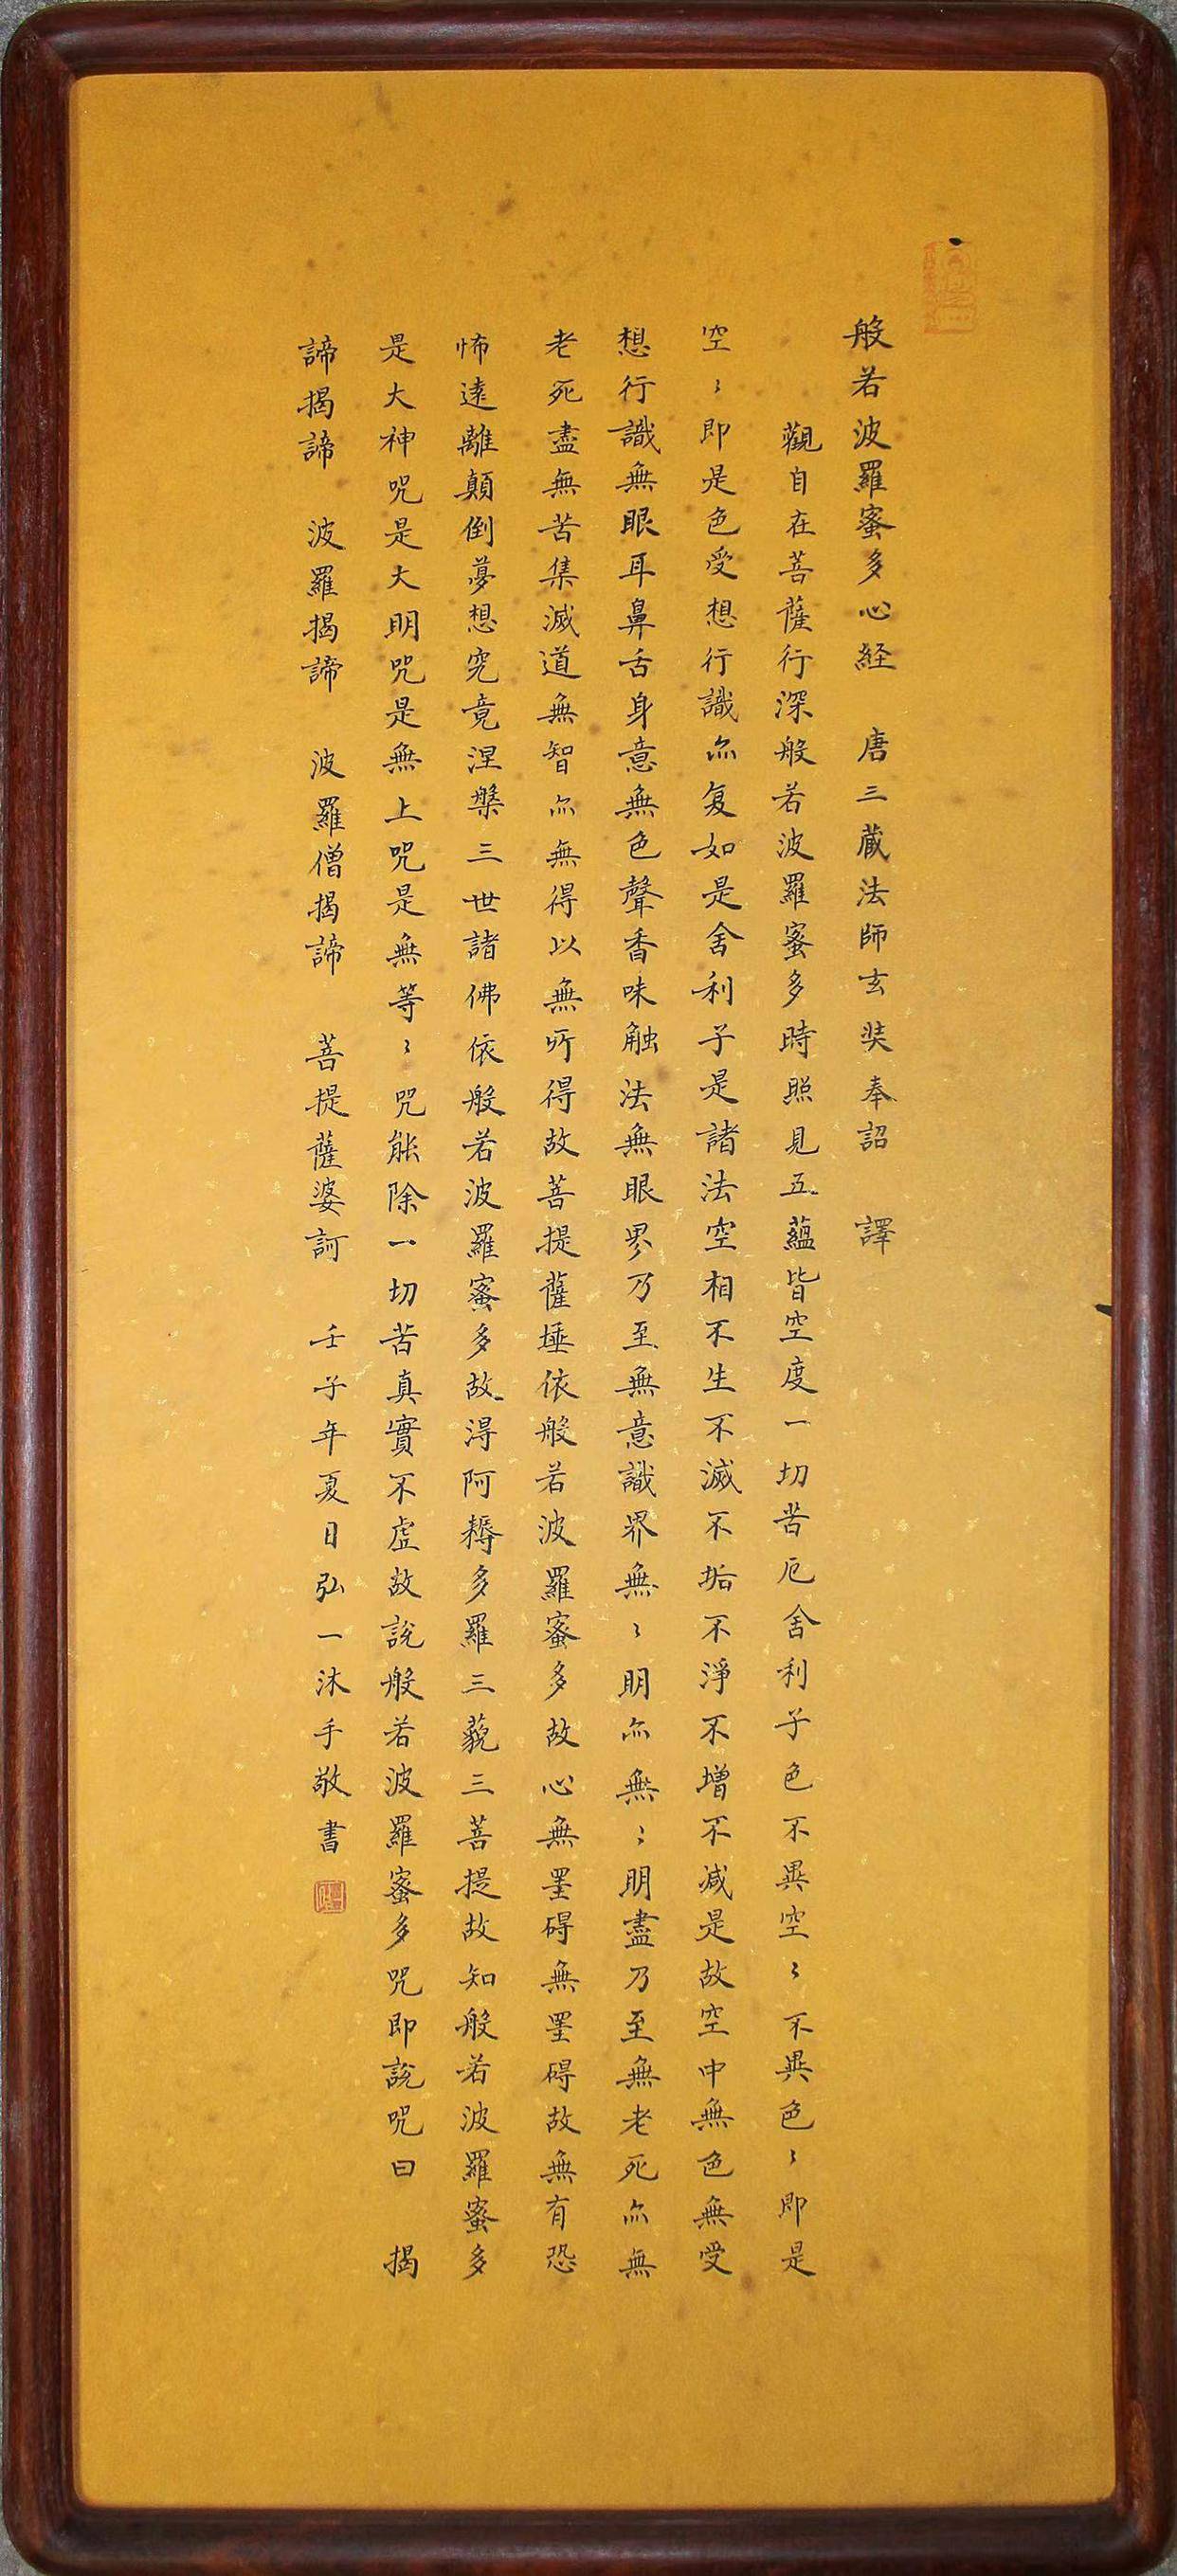 般若波羅蜜多心経　唐三藏法師玄奘奉詔　譯
觀自在菩薩行深般若波羅蜜多時照見五蘊皆空度一切苦厄舍利子色不異空〻不異色〻即是
空〻即是色受想行識亦复如是舍利子是諸法空相不生不滅不垢不淨不增不减是故空中無色無受
想行識無眼耳鼻舌身意無色聲香味触法無眼界乃至無意識界無〻明亦無〻明盡乃至無老死亦無
老死盡無苦集滅道無智亦無得以無所得故菩提薩埵依般若波羅蜜多故心無罣碍無罣碍故無有恐
怖遠離顛倒夢想究竟涅槃三世諸佛依般若波羅蜜多故得阿耨多羅三藐三菩提故知般若波羅蜜多
是大神咒是大明咒是無上咒是無等〻咒能除一切苦真實不虛故説般若波羅蜜多咒即説咒曰　揭
諦揭諦　波羅揭諦　波羅僧揭諦　菩提薩婆訶　壬子年夏日弘一沐手敬書